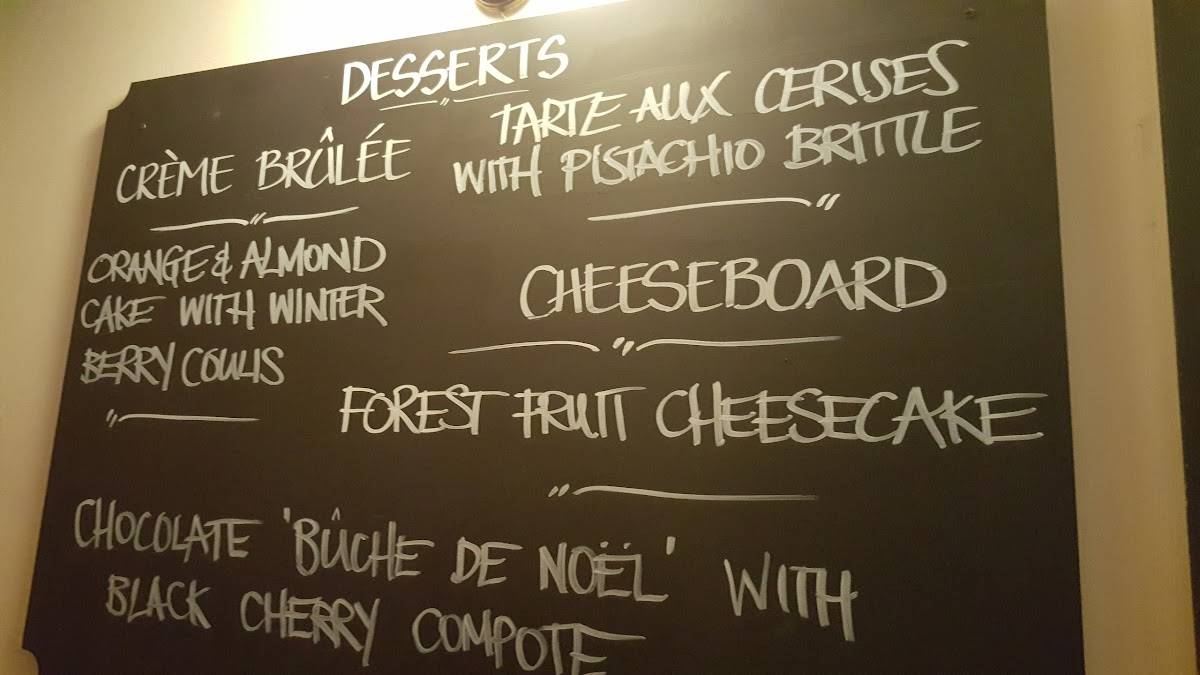 DESSERTS
CRÈME BRÛLÉE
TARTE AUX CERISES
WITH PISTACHIO BRITTLE
ORANGE & ALMOND
CAKE WITH WINTER
BERRY COULIS
CHEESEBOARD
FOREST FRUIT CHEESECAKE
CHOCOLATE 'BÛCHE DE NOËL' WITH
BLACK CHERRY COMPOTE